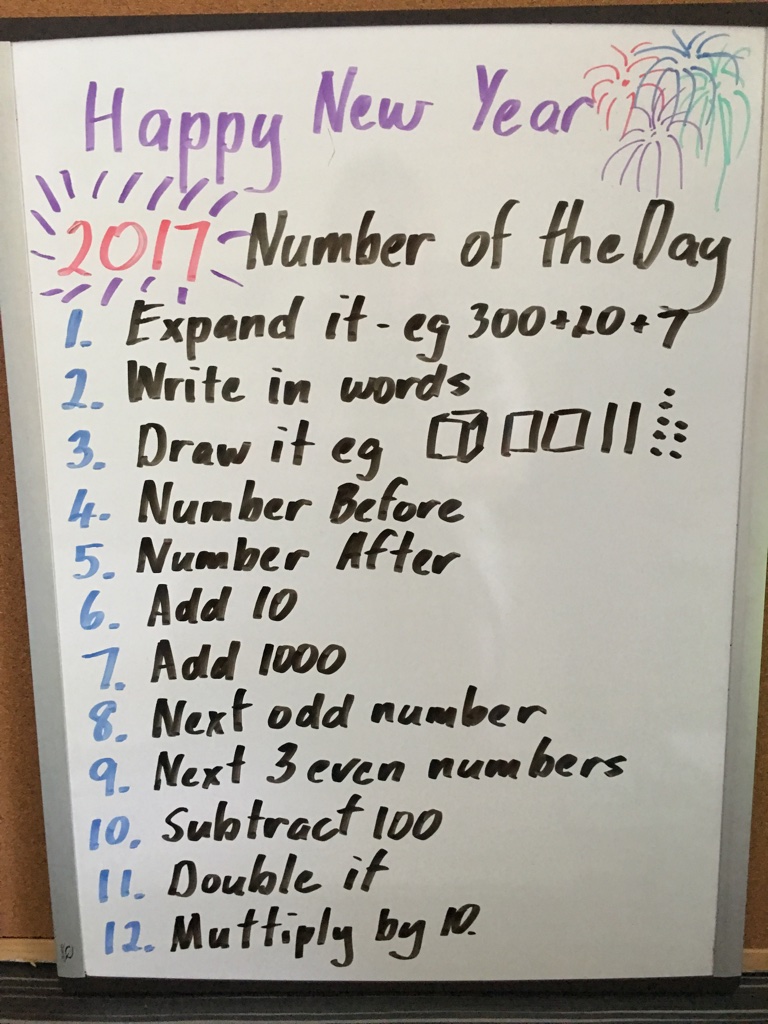 Happy New Year
2017 Number of the Day
1. Expand it - eg 300+20+7
2. Write in words
3. Draw it eg
4. Number Before
5. Number After
6. Add 10
7. Add 1000
8. Next odd number
9. Next 3 even numbers
10. Subtract 100
11. Double it
12. Multiply by 10.